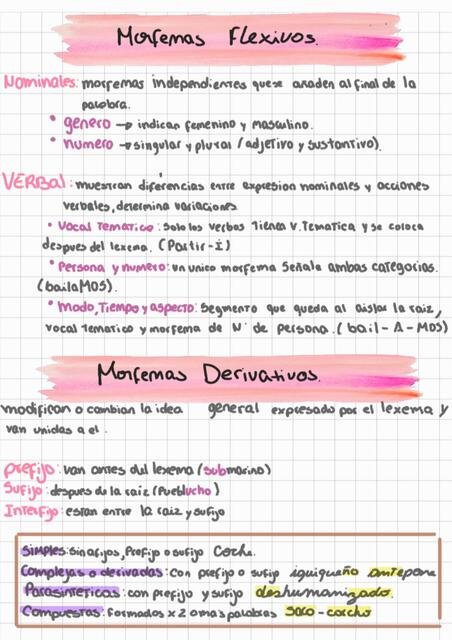 Morfemas Flexivos.
Nominales: morfemas independientes que se anaden al final de la
palabra.
• genero → indican femenino y masculino.
• numero → singular y plural (adjetivo y sustantivo).
VERBAL: muestran diferencias entre expresion nominales y acciones
verbales, determina variaciones
• Vocal Tematica: Solo los verbos Tienen V. Tematica y se coloca
despues del lexema. (Partir-i)
• Persona y numero: un unico morfema Señala ambas categorias.
(bailaMOS).
• Modo, Tiempo y aspecto: Segmento que queda al aislar la raiz,
vocal tematica y morfema de Nº de persona. (bail-A-MOS)
Morfemas Derivativos.
modifican o cambian la idea general expresado por el lexema y
van unidas a el.
prefijo: van antes del lexema (submarino)
Sufijo: despues de la raiz (Pueblucho)
Interfijo: estan entre la raiz y sufijo
Simples: Sin afijos, Prefijo o sufijo Coche.
Complejas o derivadas: Con prefijo o sufijo iquiqueño antepone
Parasinteticas: con prefijo y sufijo deshumanizado.
Compuestas: formados x 2 o mas palabras saca-corcho